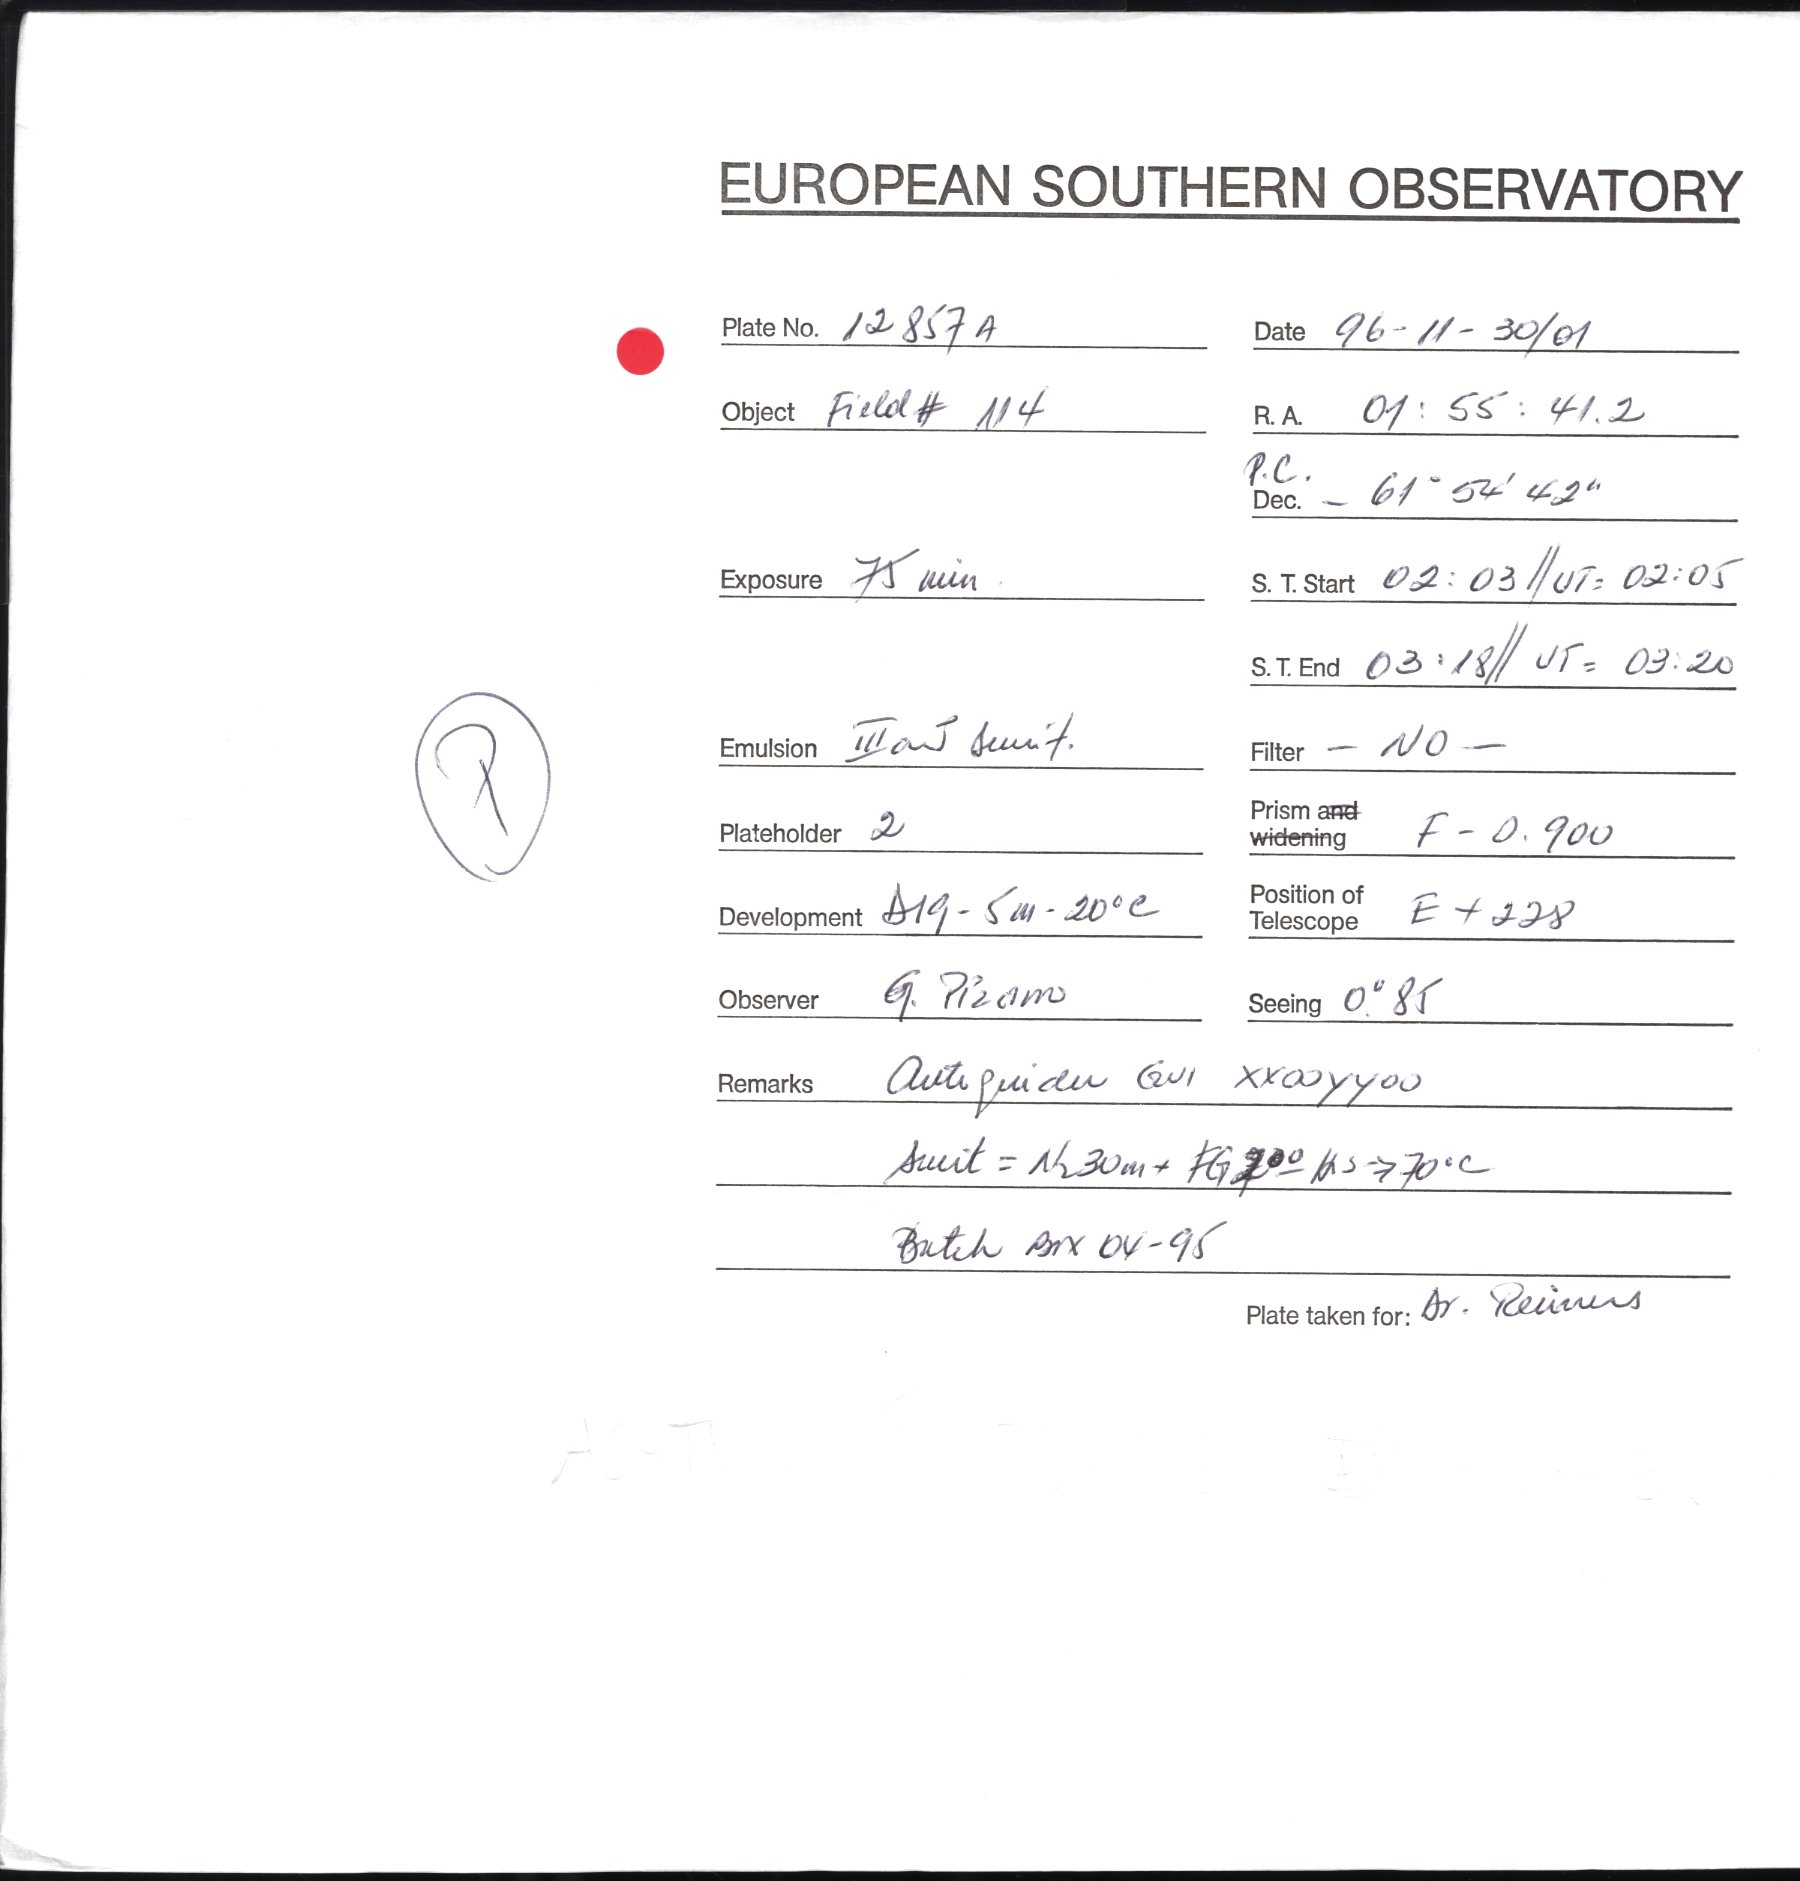 EUROPEAN SOUTHERN OBSERVATORY
Plate No. 12857A Date 96-11-30/01
Object Field# 114 R. A. 01:55:41.2
P.C.
Dec. - 61° 54' 42"
Exposure 75 min. S. T. Start 02:03//UT= 02:05
S. T. End 03:18// UT= 03:20
Emulsion IIIaJ Filter - NO -
Plateholder 2 Prism and widening F - 0.900
Development D19 - 5m - 20°C Position of Telescope E + 228
Observer G. Pizarro Seeing 0".85
Remarks Autoguider GUI XX00YY00
= N2 30m + FG Hs → 70°C
Batch Box 04-95
Plate taken for: Dr. Reimers
R